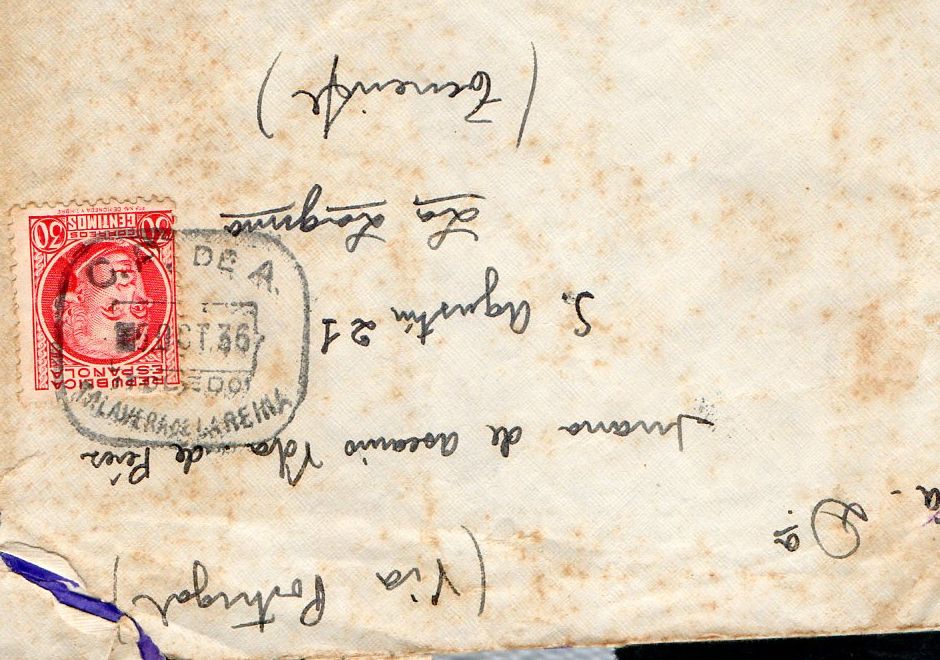 (Via Portugal)
Dª
de Ascanio Vda de Pérez
S. Agustin 21
La Laguna
(Tenerife)
REPUBLICA
ESPAÑOLA
30 CORREOS 30
CENTIMOS
DE A.
OCT.36
TOLEDO
TALAVERA DE LA REINA